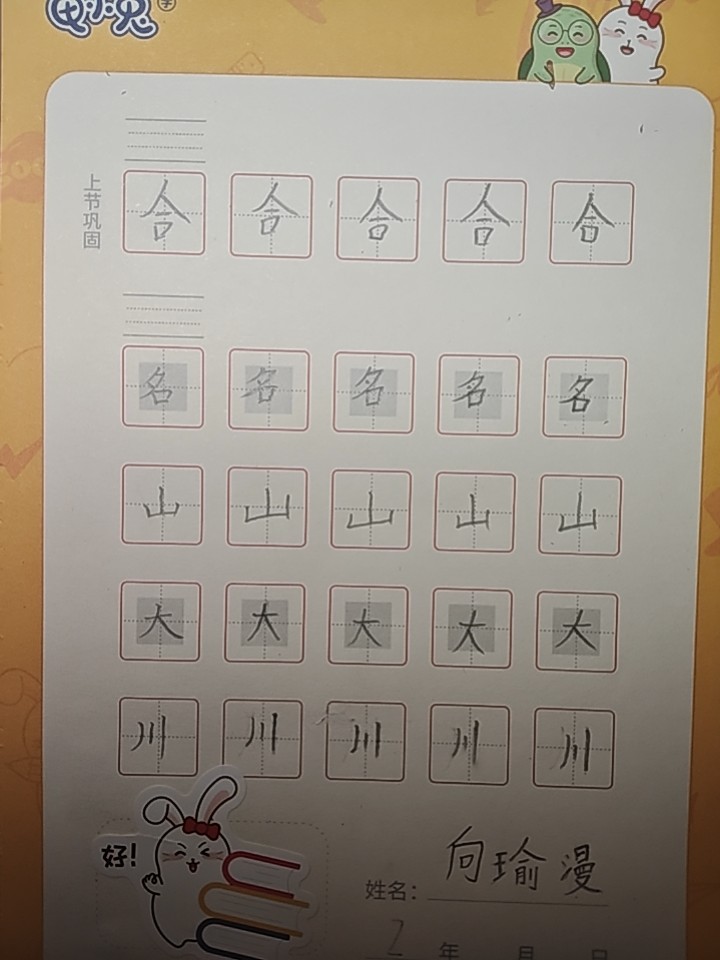 上节巩固
合 合 合 合 合
名 名 名 名 名
山 山 山 山 山
大 大 大 大 大
川 川 川 川 川
好!
姓名: 向瑜漫
2 年 月 日